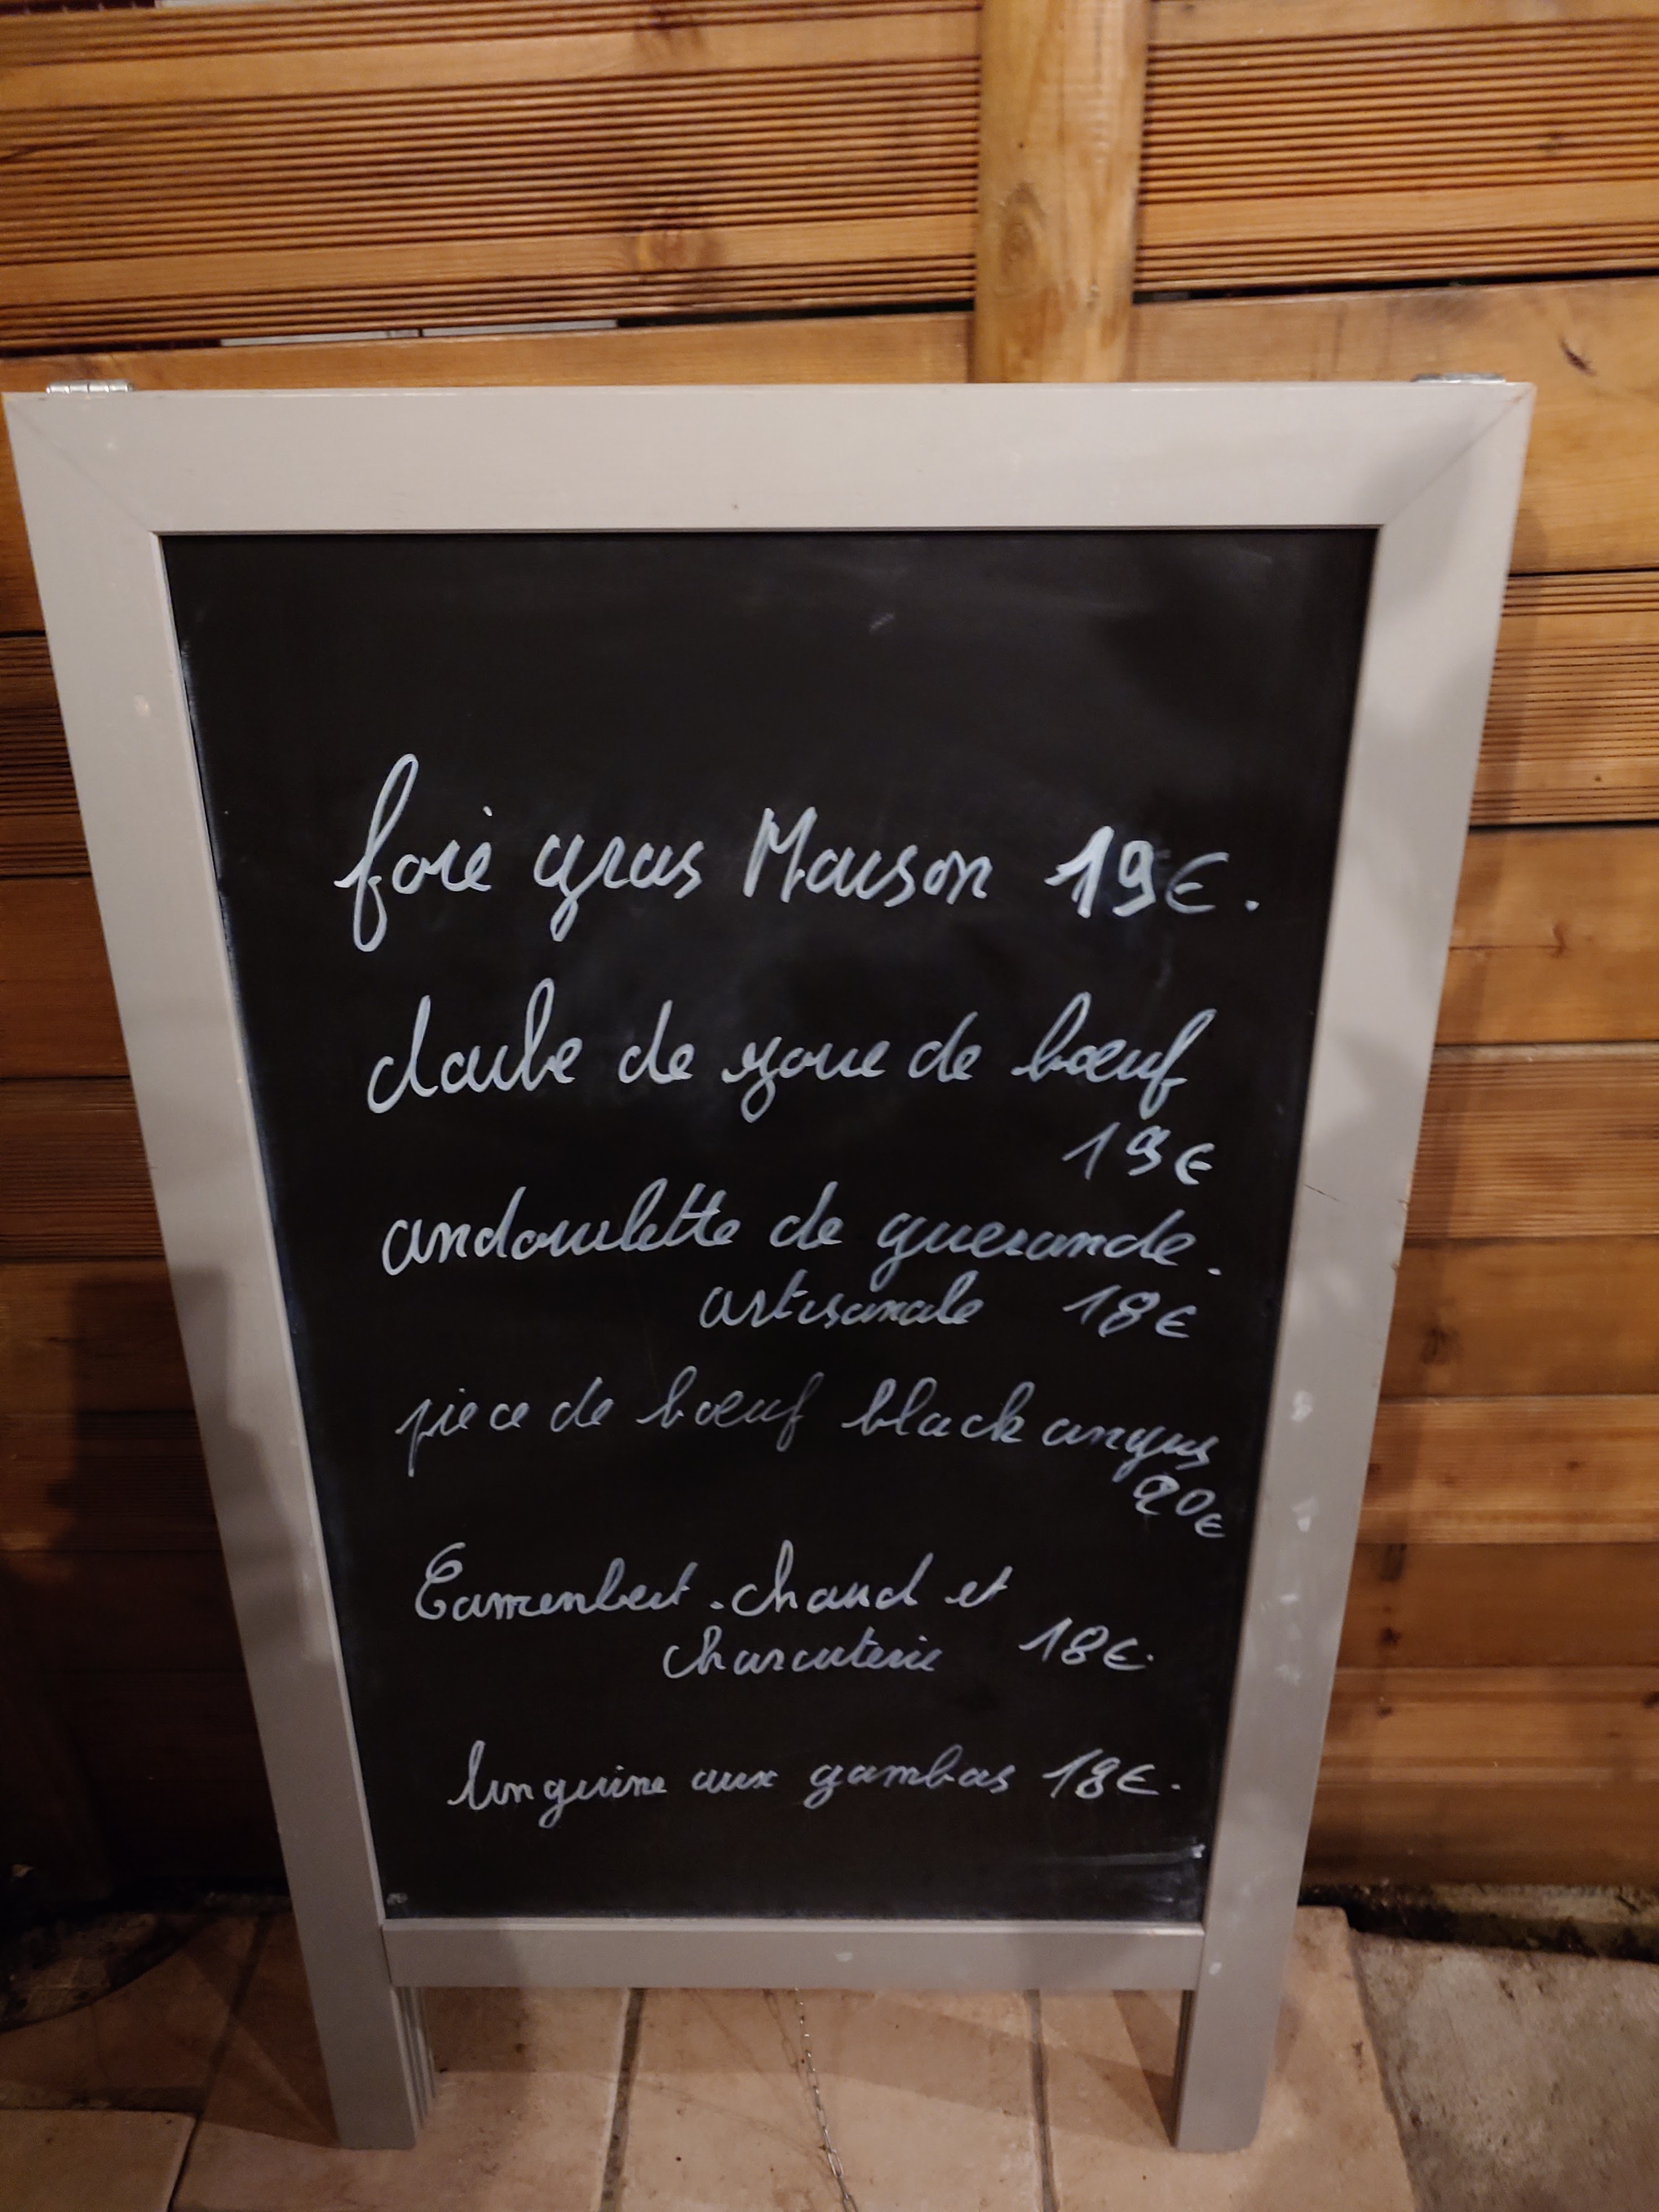 foie gras Maison 19€.
daube de joue de bœuf
19€
andouillette de guerande.
artisanale 18€
piece de bœuf black angus
20€
Camembert.chaud et
charcuterie 18€.
linguine aux gambas 18€.